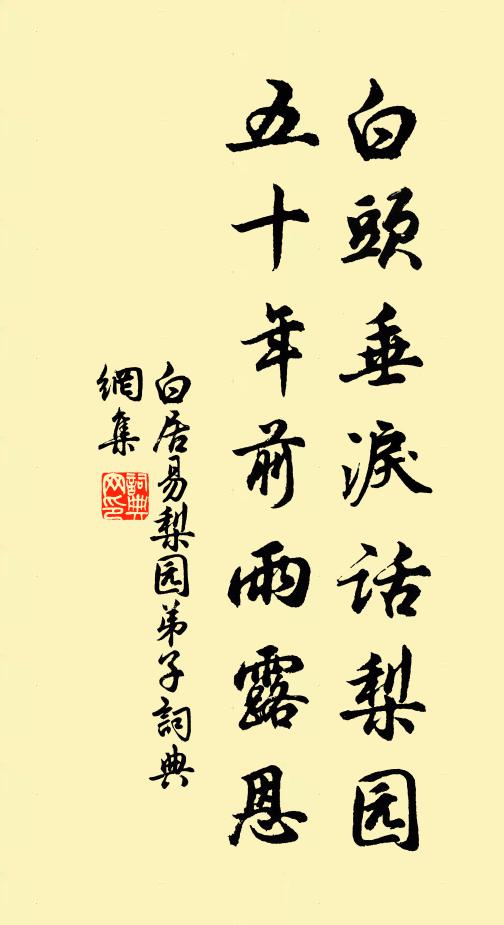 白頭垂淚話梨园
五十年前雨露恩
白居易梨园弟子詞典
網集
詞典网印